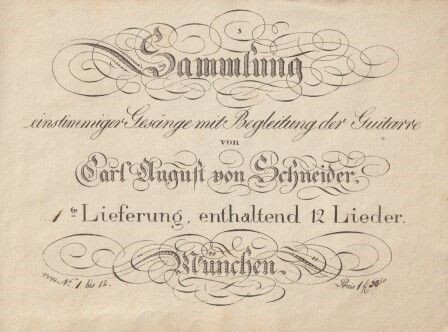 Sammlung
einstimmiger Gesänge mit Begleitung der Guitarre
von
Carl August von Schneider.
1te Lieferung, enthaltend 12 Lieder.
München.
von No. 1 bis 12.
Preis 1 f.